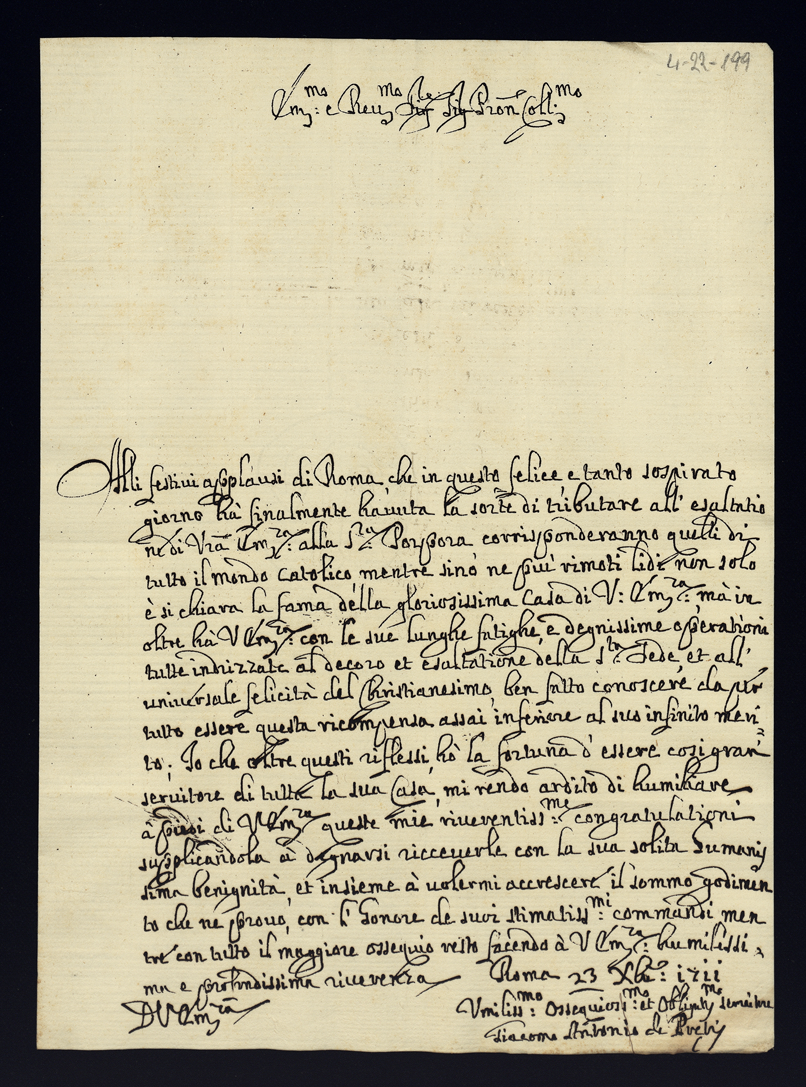 4-22-199
Em:mo e Reu:mo Sig:re Sig: Pron Coll:mo
Alli festiui applausi di Roma, che in questo felice e tanto sospirato
giorno hà finalmente hauuta la sorte di tributare all' esaltatio
ne di Vrã Em:za alla S:ra Porpora corrisponderanno quelli di
tutto il mondo Catolico, mentre sino ne più rimoti lidi non solo
è si chiara la fama della gloriosissima Casa di V: Em:za, mà in
oltre hà V Em:za con le sue lunghe fatighe, e degnissime operationi
tutte indrizzate al decoro et esaltatione della S:ta Sede, et all'
uniuersale felicità del Christianesimo, ben fatto conoscere da per
tutto essere questa ricompensa assai inferiore al suo infinito meri=
to; Io che oltre questi riflessi, hò la fortuna d' essere cosi gran
seruitore di tutta la sua Casa, mi rendo ardito di humiliare
à piedi di V Em:za queste mie riuerentiss:me congratulationi
supplicandola à degnarsi riceuerle con la sua solita humanis
sima benignità, et insieme à uolermi accrescere il sommo godimen
to che ne prouo, con l' honore de suoi stimatiss:mi commandi, men
tre con tutto il maggiore ossequio resto facendo à V Em:za humilissi=
ma e profondissima riuerenza Roma 23 Xbre: 1711
D V Em:za
Vmiliss:mo Ossequios:mo et Obligat:mo seruitore
Giacomo Antonio de